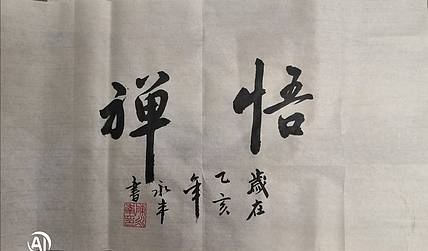 悟禅
歳在
乙亥
年
永丰
書
AI